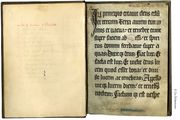 In principio creauit deus celū
et terram Terra autem erat ina
nis et uacua: et tenebre erant
super faciem ab ssi: et spiri
tus domini ferebatur super a
quas Dixitq; deus fiat lux. Et
facta est lux Et uidit deus lu
cem quod esset bona: et diui
sit lucem a tenebris Appella
uitq; lucem diem: et tenebras
noctem Factum est uespe